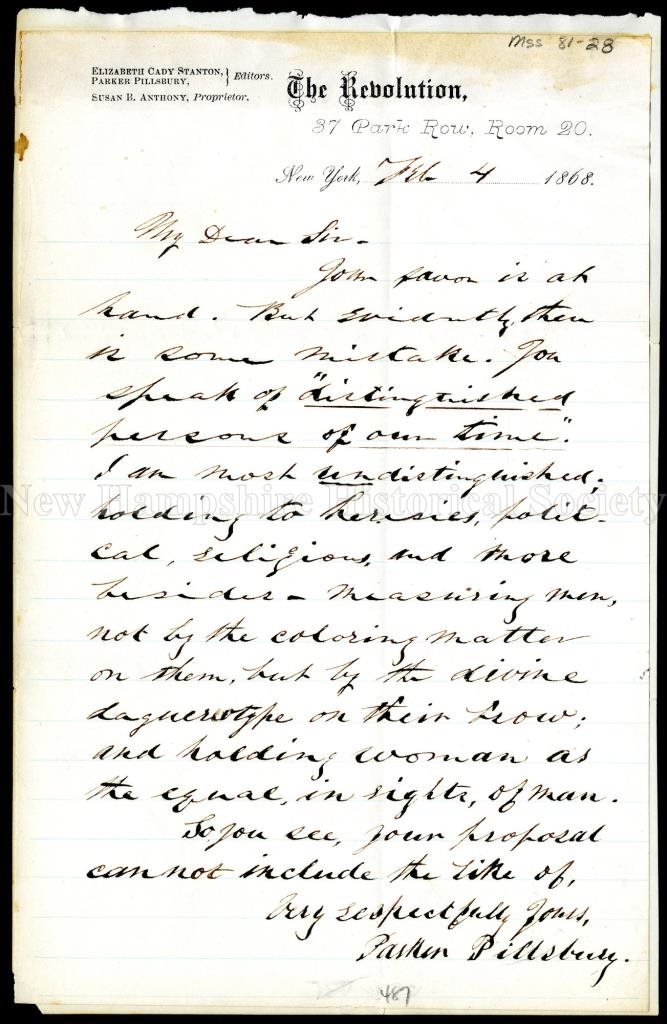 Mss 81-28
ELIZABETH CADY STANTON,
PARKER PILLSBURY,
Editors.
SUSAN B. ANTHONY, Proprietor.
The Revolution,
37 Park Row, Room 20.
New York, Feb 4 1868.
My Dear Sir -
Your favor is at
hand. But evidently, there
is some mistake. You
speak of "distinguished
persons of our time".
I am most undistinguished;
holding to heresies, polit-
cal, religious, and more
besides - measuring men,
not by the coloring matter
on them, but by the divine
daguerreotype on their brow;
and holding woman as
the equal, in rights, of man.
So, you see, your proposal
can not include the like of,
Very respectfully Yours,
Parker Pillsbury.
487
New Hampshire Historical Society